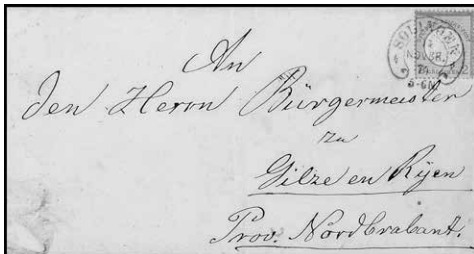 SOLINGEN
An
den Herrn Bürgermeister
zu
Gilze en Rijen
Prov. Nordbrabant.